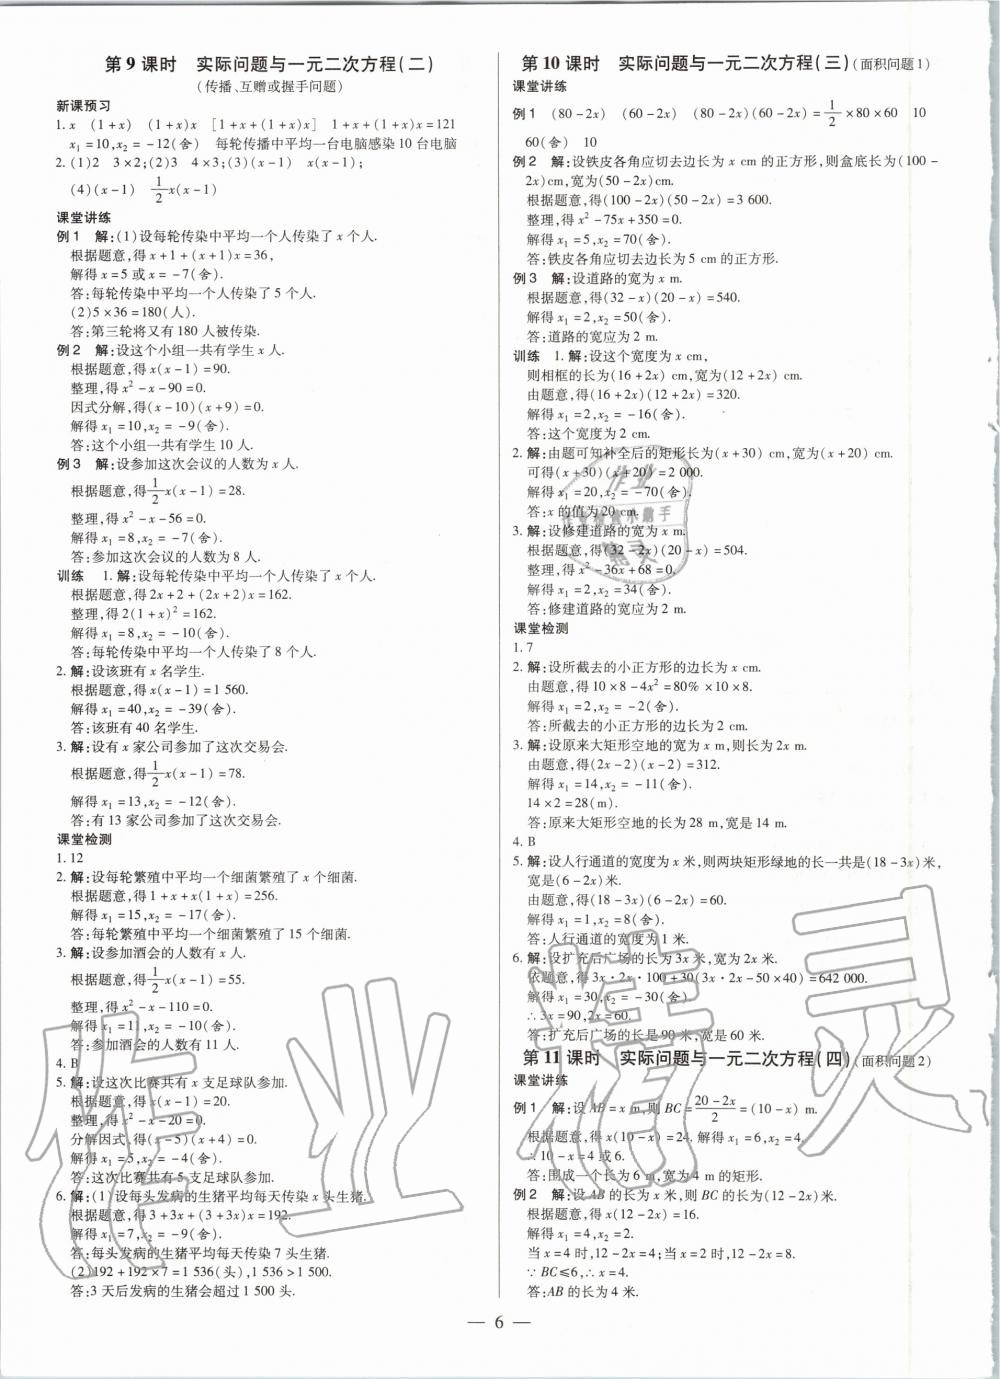 第9课时　实际问题与一元二次方程(二)
(传播、互赠或握手问题)
新课预习
1. x　(1+x)　(1+x)x　[1+x+(1+x)x]　1+x+(1+x)x=121
x₁=10,x₂=-12(舍)　每轮传播中平均一台电脑感染10台电脑
2. (1)2　3×2;(2)3　4×3;(3)(x-1)　x(x-1)
(4)(x-1)　1/2x(x-1)
课堂讲练
例1　解:(1)设每轮传染中平均一个人传染了x个人.
根据题意,得x+1+(x+1)x=36,
解得x=5或x=-7(舍).
答:每轮传染中平均一个人传染了5个人.
(2)5×36=180(人).
答:第三轮将又有180人被传染.
例2　解:设这个小组一共有学生x人.
根据题意,得x(x-1)=90.
整理,得x²-x-90=0.
因式分解,得(x-10)(x+9)=0.
解得x₁=10,x₂=-9(舍).
答:这个小组一共有学生10人.
例3　解:设参加这次会议的人数为x人.
根据题意,得1/2x(x-1)=28.
整理,得x²-x-56=0.
解得x₁=8,x₂=-7(舍).
答:参加这次会议的人数为8人.
训练　1. 解:设每轮传染中平均一个人传染了x个人.
根据题意,得2x+2+(2x+2)x=162.
整理,得2(1+x)²=162.
解得x₁=8,x₂=-10(舍).
答:每轮传染中平均一个人传染了8个人.
2. 解:设该班有x名学生.
根据题意,得x(x-1)=1 560.
解得x₁=40,x₂=-39(舍).
答:该班有40名学生.
3. 解:设有x家公司参加了这次交易会.
根据题意,得1/2x(x-1)=78.
解得x₁=13,x₂=-12(舍).
答:有13家公司参加了这次交易会.
课堂检测
1. 12
2. 解:设每轮繁殖中平均一个细菌繁殖了x个细菌.
根据题意,得1+x+x(1+x)=256.
解得x₁=15,x₂=-17(舍).
答:每轮繁殖中平均一个细菌繁殖了15个细菌.
3. 解:设参加酒会的人数有x人.
根据题意,得1/2x(x-1)=55.
整理,得x²-x-110=0.
解得x₁=11,x₂=-10(舍).
答:参加酒会的人数有11人.
4. B
5. 解:设这次比赛共有x支足球队参加.
根据题意,得x(x-1)=20.
整理,得x²-x-20=0.
分解因式,得(x-5)(x+4)=0.
解得x₁=5,x₂=-4(舍).
答:这次比赛共有5支足球队参加.
6. 解:(1)设每头发病的生猪平均每天传染x头生猪.
根据题意,得3+3x+(3+3x)x=192.
解得x₁=7,x₂=-9(舍).
答:每头发病的生猪平均每天传染7头生猪.
(2)192+192×7=1 536(头),1 536>1 500.
答:3天后发病的生猪会超过1 500头.
第10课时　实际问题与一元二次方程(三)(面积问题1)
课堂讲练
例1　(80-2x)　(60-2x)　(80-2x)(60-2x)=1/2×80×60　10
60(舍)　10
例2　解:设铁皮各角应切去边长为x cm的正方形,则盒底长为(100-
2x)cm,宽为(50-2x)cm.
根据题意,得(100-2x)(50-2x)=3 600.
整理,得x²-75x+350=0.
解得x₁=5,x₂=70(舍).
答:铁皮各角应切去边长为5 cm的正方形.
例3　解:设道路的宽为x m.
根据题意,得(32-x)(20-x)=540.
解得x₁=2,x₂=50(舍).
答:道路的宽应为2 m.
训练　1. 解:设这个宽度为x cm,
则相框的长为(16+2x) cm,宽为(12+2x) cm.
由题意,得(16+2x)(12+2x)=320.
解得x₁=2,x₂=-16(舍).
答:这个宽度为2 cm.
2. 解:由题可知补全后的矩形长为(x+30) cm,宽为(x+20) cm.
可得(x+30)(x+20)=2 000.
解得x₁=20,x₂=-70(舍).
答:x的值为20 cm.
3. 解:设修建道路的宽为x m.
根据题意,得(32-2x)(20-x)=504.
整理,得x²-36x+68=0.
解得x₁=2,x₂=34(舍).
答:修建道路的宽应为2 m.
课堂检测
1. 7
2. 解:设所截去的小正方形的边长为x cm.
由题意,得10×8-4x²=80%×10×8.
解得x₁=2,x₂=-2(舍).
答:所截去的小正方形的边长为2 cm.
3. 解:设原来大矩形空地的宽为x m,则长为2x m.
由题意,得(2x-2)(x-2)=312.
解得x₁=14,x₂=-11(舍).
14×2=28(m).
答:原来大矩形空地的长为28 m,宽是14 m.
4. B
5. 解:设人行通道的宽度为x米,则两块矩形绿地的长一共是(18-3x)米,
宽是(6-2x)米.
由题意,得(18-3x)(6-2x)=60.
解得x₁=1,x₂=8(舍).
答:人行通道的宽度为1米.
6. 解:设扩充后广场的长为3x米,宽为2x米.
依题意,得3x·2x·100+30(3x·2x-50×40)=642 000.
解得x₁=30,x₂=-30(舍).
∴3x=90,2x=60.
答:扩充后广场的长是90米,宽是60米.
第11课时　实际问题与一元二次方程(四)(面积问题2)
课堂讲练
例1　解:设AB=x m,则BC=(20-2x)/2=(10-x) m.
根据题意,得x(10-x)=24. 解得x₁=6,x₂=4.
∴10-x=4或6.
答:围成一个长为6 m,宽为4 m的矩形.
例2　解:设AB的长为x米,则BC的长为(12-2x)米.
根据题意,得x(12-2x)=16.
解得x₁=4,x₂=2.
当x=4时,12-2x=4;当x=2时,12-2x=8.
∵BC≤6,∴x=4.
答:AB的长为4米.
— 6 —
作业精灵